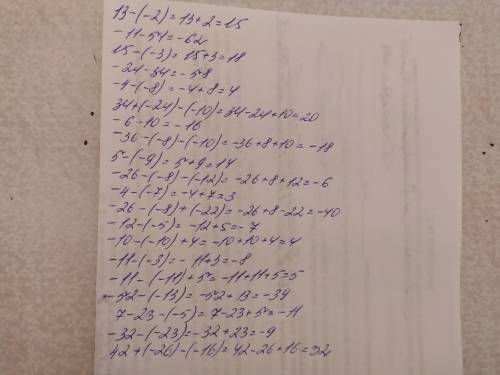 13-(-2)=13+2=15
-11-51=-62
15-(-3)=15+3=18
-24-34=-58
-4-(-8)=-4+8=4
34+(-24)-(-10)=34-24+10=20
-6-10=-16
-36-(-8)-(-10)=-36+8+10=-18
5-(-9)=5+9=14
-26-(-8)-(-12)=-26+8+12=-6
-4-(-7)=-4+7=3
-26-(-8)+(-22)=-26+8-22=-40
-12-(-5)=-12+5=-7
-10-(-10)+4=-10+10+4=4
-11-(-3)=-11+3=-8
-11-(-11)+5=-11+11+5=5
-52-(-13)=-52+13=-39
7-23-(-5)=7-23+5=-11
-32-(-23)=-32+23=-9
42+(-26)-(-16)=42-26+16=32